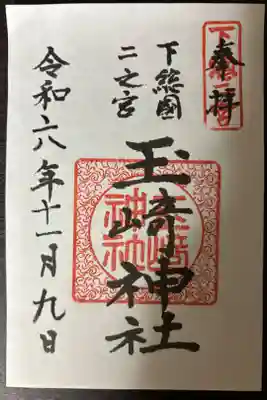 奉拝
下総國
二之宮
玉崎神社
令和六年十一月九日